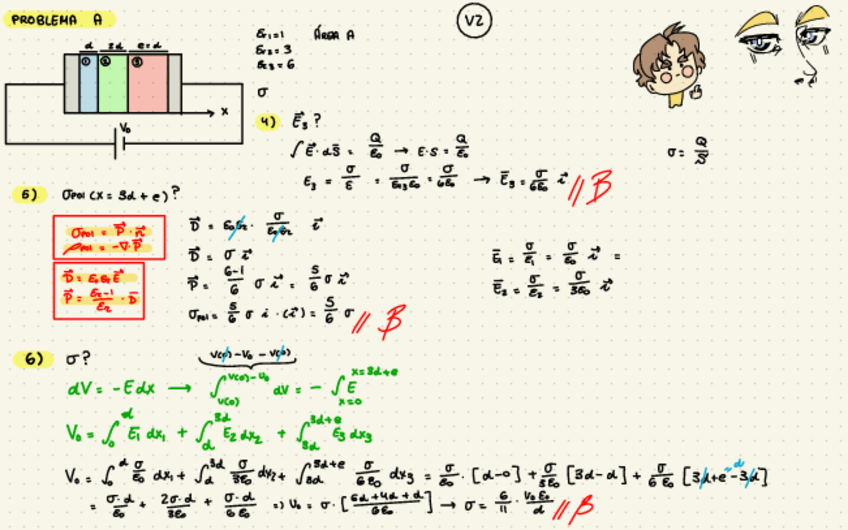 PROBLEMA A
V2
d 2d e=d
① ② ③
x
V₀
εr1=1 ÁREA A
εr2=3
εr3=6
σ
4) E⃗₃?
∫E⃗·dS⃗ = Q/ε₀ → E·S = Q/ε₀
σ = Q/S
E₃ = σ/ε = σ/(εr3ε₀) = σ/(6ε₀) → E⃗₃ = σ/(6ε₀) i⃗ // B
5) σpol (x = 3d + e)?
σpol = P⃗·n⃗
ρpol = -∇·P⃗
D⃗ = ε₀εrE⃗
P⃗ = (εr-1)/εr · D⃗
D⃗ = ε₀εr · σ/(ε₀εr) i⃗
D⃗ = σ i⃗
P⃗ = (6-1)/6 σ i⃗ = 5/6 σ i⃗
σpol = 5/6 σ i · (i⃗) = 5/6 σ // B
E⃗₁ = σ/ε₁ = σ/ε₀ i⃗ =
E⃗₂ = σ/ε₂ = σ/(3ε₀) i⃗
6) σ?
V(0) - V₀ - V(0)
dV = -E dx → ∫_{V(0)}^{V(0)-V₀} dV = - ∫_{x=0}^{x=3d+e} E
V₀ = ∫₀^d E₁ dx₁ + ∫_d^{3d} E₂ dx₂ + ∫_{3d}^{3d+e} E₃ dx₃
V₀ = ∫₀^d σ/ε₀ dx₁ + ∫_d^{3d} σ/(3ε₀) dx₂ + ∫_{3d}^{3d+e} σ/(6ε₀) dx₃ = σ/ε₀ · [d-0] + σ/(3ε₀) [3d-d] + σ/(6ε₀) [3d+e-3d] =d
= σ·d/ε₀ + 2σ·d/(3ε₀) + σ·d/(6ε₀) => V₀ = σ · [(6d+4d+d)/(6ε₀)] → σ = 6/11 · V₀ε₀/d // B